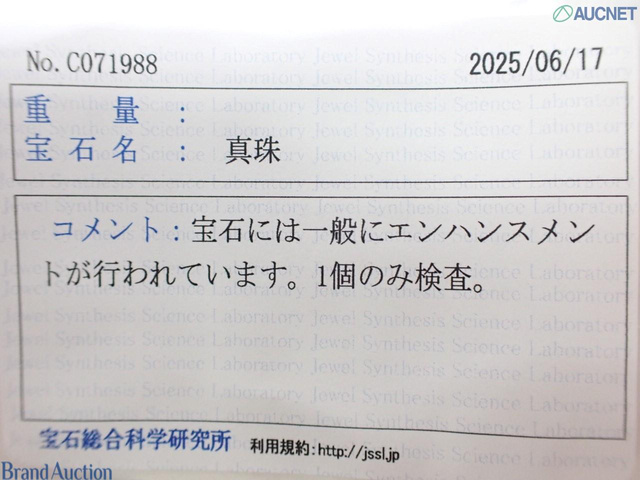 AUCNET
No.C071988 2025/06/17
重量：
宝石名： 真珠
コメント：宝石には一般にエンハンスメン
トが行われています。1個のみ検査。
宝石総合科学研究所 利用規約:http://jssl.jp
Brand Auction
Jewel Synthesis Science Laboratory